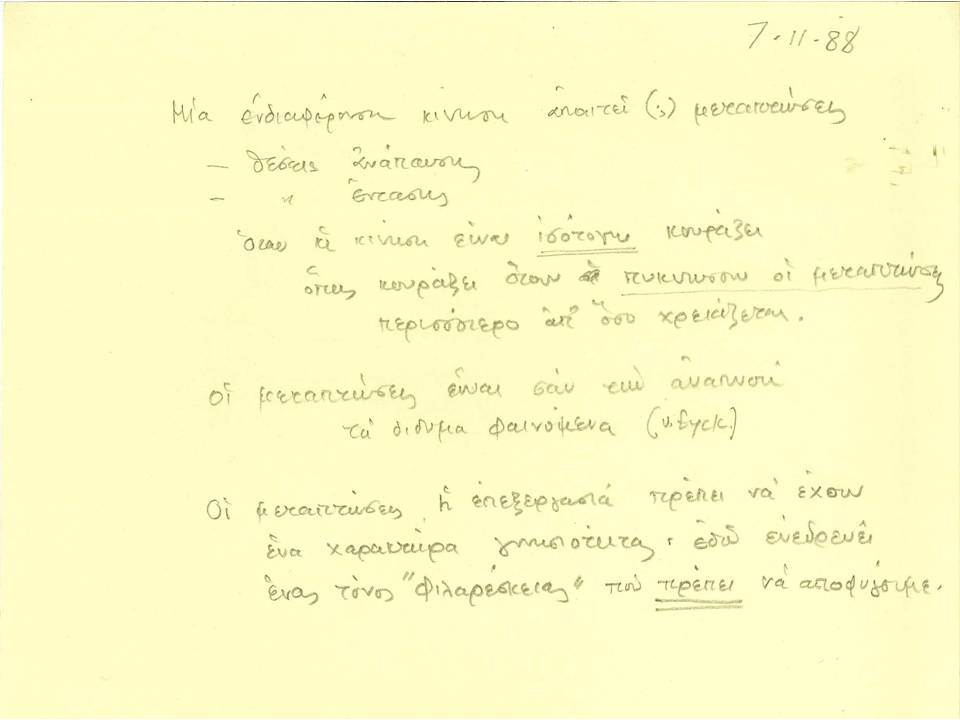 7-11-88
Μία ἐνδιαφέρουσα κίνηση ἀπαιτεῖ (;) μεταπτώσεις
– θέσεις ἀνάπαυσης
– " ἔντασης
ὅταν ἡ κίνηση εἶναι ἰσότονη κουράζει
ὅπως κουράζει ὅταν πυκνώσουν οἱ μεταπτώσεις
περισσότερο ἀπ' ὅσο χρειάζεται.
Οἱ μεταπτώσεις εἶναι σάν τήν ἀναπνοή
τά δίδυμα φαινόμενα (v. Eyck.)
Οἱ μεταπτώσεις, ἡ ἐπεξεργασία πρέπει νά ἔχουν
ἕνα χαρακτήρα γνησιότητας · ἐδῶ ἐνεδρεύει
ἕνας τόνος "φιλαρέσκειας" πού πρέπει νά αποφύγουμε.